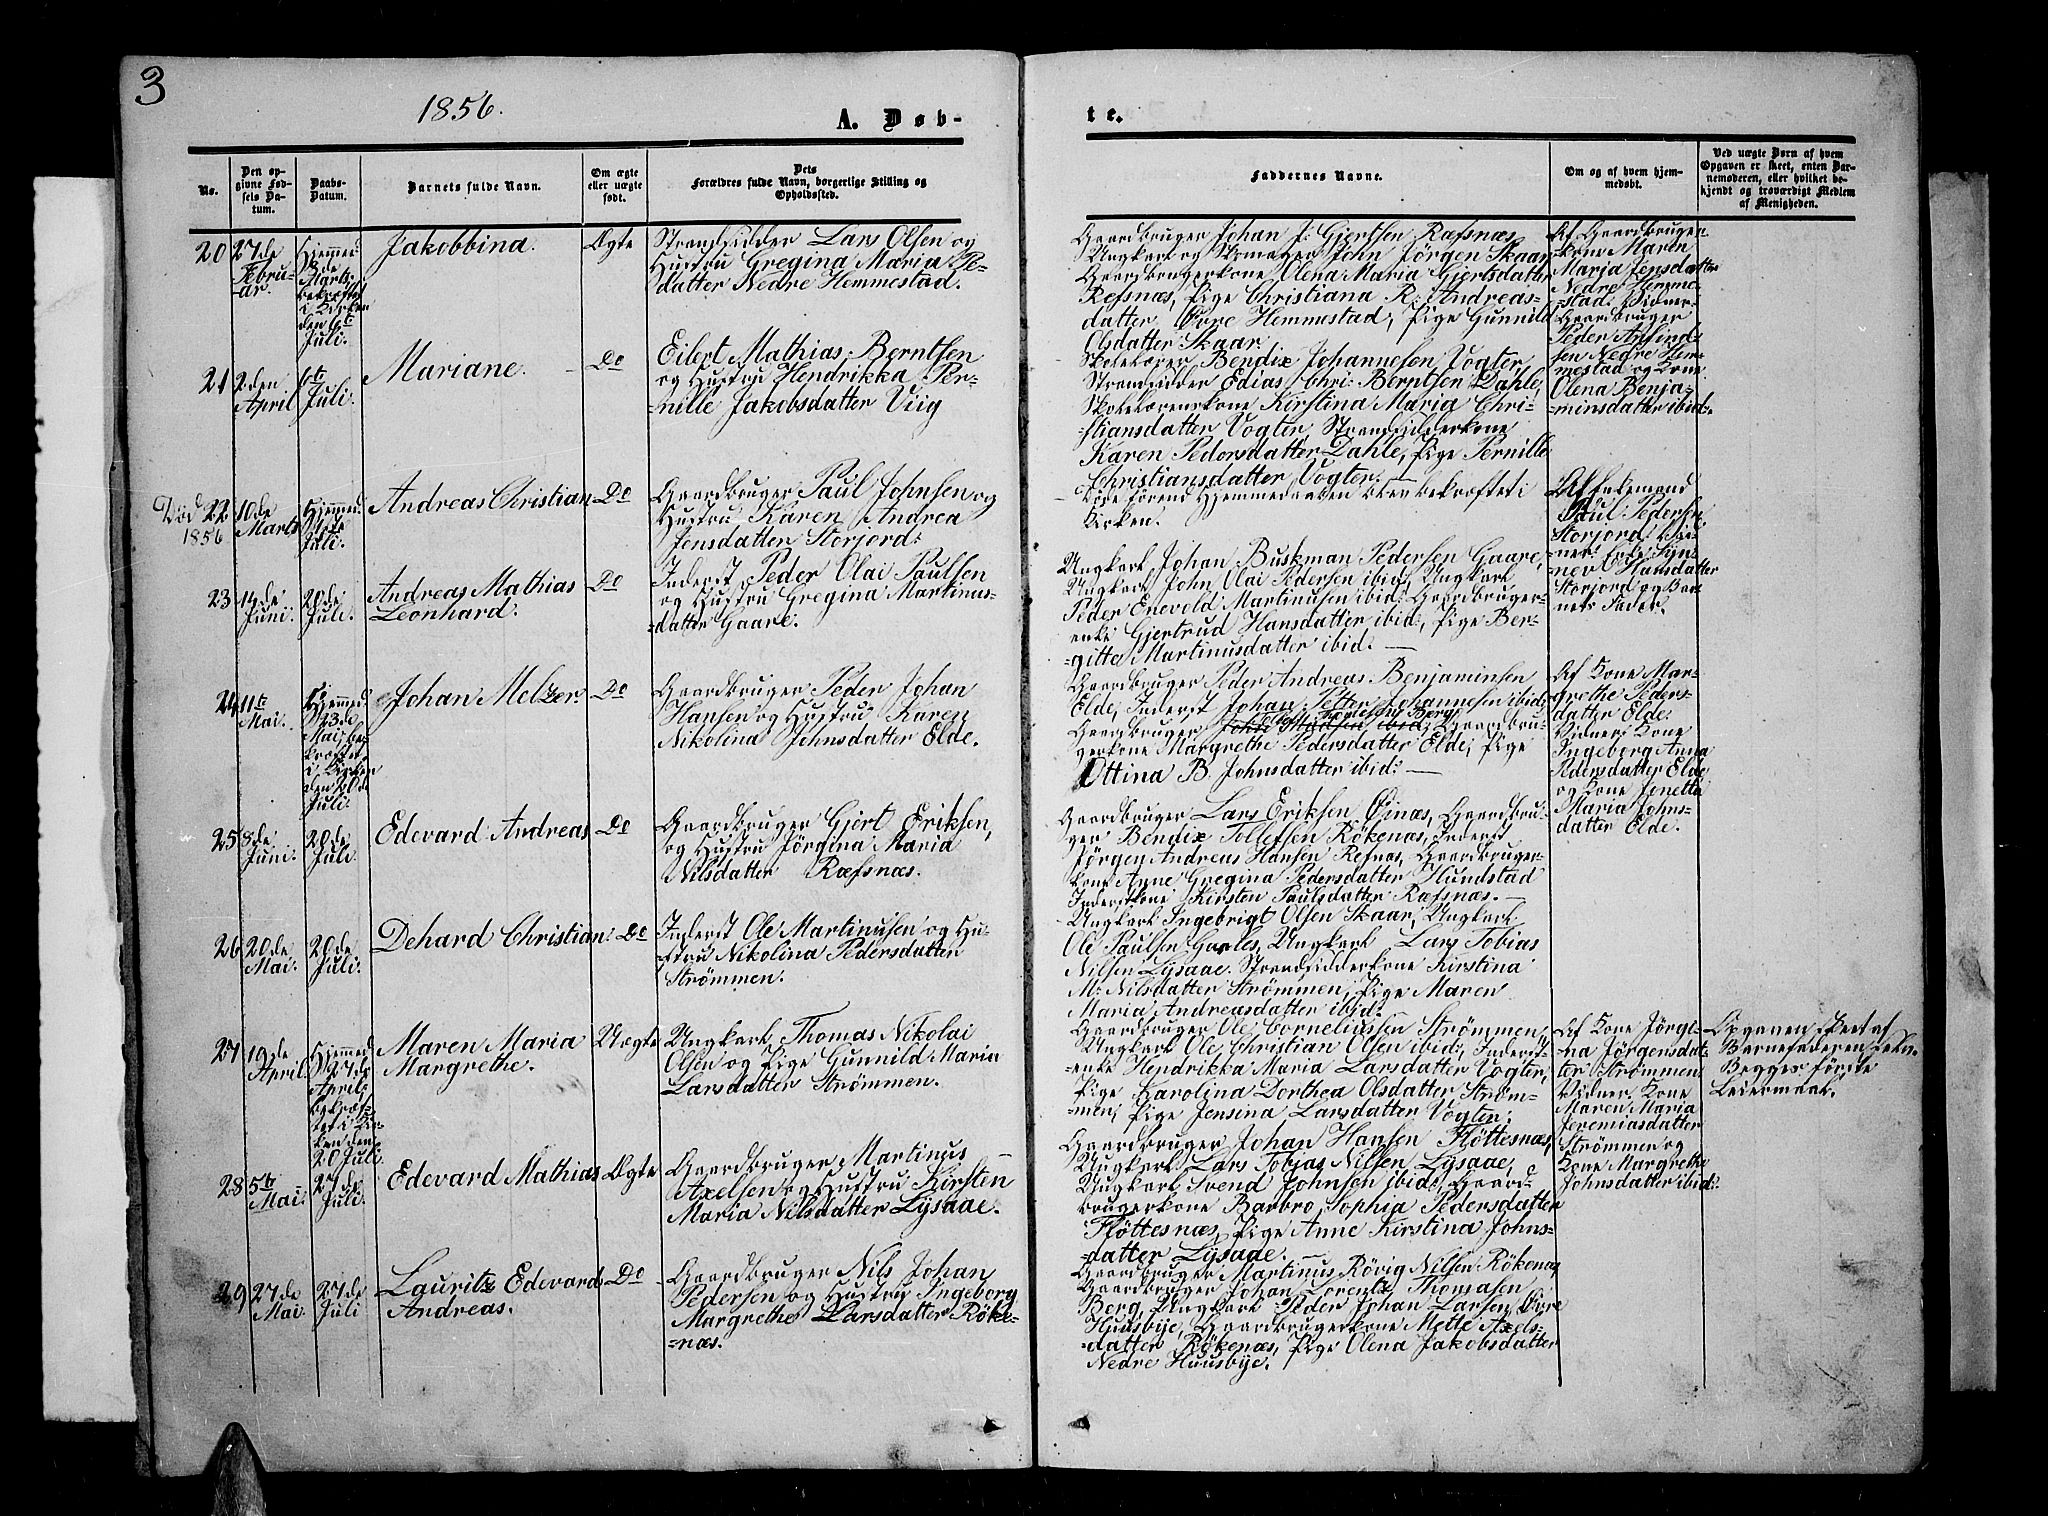 3
1856.
A. Døb-
te.
No.
Den op-
givne Fød-
sels Da-
tum.
Daabs-
Datum.
Barnets fulde Navn.
Om ægte
eller uægte
født.
Dets
Forældres fulde Navn, borgerlige Stilling og
Opholdssted.
Faddernes Navne.
Om og af hvem hjem-
medøbt.
Ved uægte Børn af hvem
Opgaven er skeet, enten Bar-
nemoderen, eller hvilket be-
kjendt og troværdigt Medlem
af Menigheden.
20
27de
Febru-
-ar.
Hjemmed
de
Marts
bekræftet
i Kirken
den 6te
Juli.
Jakobbina.
Ægte
Strandsidder Lars Olsen og
Hustru Gregina Maria Pe-
datter Nedre Hemmestad.
Gaardbruger Johan J. Gjertsen Ræfsnæs,
Ungkarl og Skomager John Jörgen Skaar,
Gaardbrugerkone Olena Maria Gjertsdatter
Refsnæs, Pige Christiana R. Andreas-
datter Øvre Hemmestad, Pige Gunnild
Olsdatter Skaar.
Af Gaardbruger
kone Maren
Maria Jensdatter
Nedre Hemme-
-stad. Vidner.
Gaardbruger
Peder Arfind-
sen Nedre Hem-
mestad og Kone
Olena Benja-
-minsdatter ibid:
21
2den
April
6te
Juli.
Mariane.
Do
Eilert Mathias Berntsen
og Hustru Hendrikka Per-
-nille Jakobsdatter Viig
Skolelærer Bendix Johannesen Vogter,
Strandsidder Edias Chri: Berntsen Dahle,
Skolelærerskone Kirstina Maria Chri-
-stiansdatter Vogter, Strandsidderkone
Karen Pedersdatter Dahle, Pige Pernille
Christiansdatter Vogter. —
Død
1856
22
10de
Marts
Hjemmed.
Juli.
Andreas Christian
Do
Gaardbruger Paul Johnsen og
Hustru Karen Andrea
Jensdatter Storjord.
Døde förend Hjemmedaaben blev bekræftet i
Kirken.
Af Enkemand
Paul Pedersen
Storjord. Vid-
ner: Enke Syn-
nev Hansdatter
Storjord og Bar-
nets Fader.
23
14de
Juni
20de
Juli.
Andreas Mathias
Leonhard.
Do
Inderst Peder Olai Paulsen
og Hustru Gregina Martinus-
-datter Gaare.
Ungkarl Johan Buskman Pedersen Gaare,
Ungkarl John Olai Pedersen ibid, Ungkarl
Peder Enevold Martinusen ibid, Gaardbruger-
enke Gjertrud Hansdatter ibid, Pige Ber-
gitte Martinusdatter ibid. —
24
11te
Mai.
Hjemmed
23de
Mai, be-
kræftet
i Kirken
den 20de
Juli.
Johan Melzer.
Do
Gaardbruger Peder Johan
Hansen og Hustru Karen
Nikolina Johnsdatter Elde.
Gaardbruger Peder Andreas Benjaminsen
Elde, Inderst Johan Petter Johannesen ibid,
Gaardbruger ibid, Gaardbru-
gerkone Margrethe Pedersdatter Elde, Pige
Ottina B. Johnsdatter ibid. —
Af Kone Mar-
grethe Peders-
datter Elde.
Vidner: Kone
Ingeborg Anna
Pedersdatter Elde
og Kone Jenetta
Maria Johns-
datter Elde.
25
8de
Juni.
20de
Juli.
Edevard Andreas
Do
Gaardbruger Gjert Eriksen,
og Hustru Jörgina Maria
Nilsdatter Ræfsnæs.
Gaardbruger Lars Eriksen Øinæs, Gaardbru-
ger Bendix Tollefsen Rökenæs, Inderst
Jörgen Andreas Hansen Refnæs, Gaardbruger-
kone Anne Gregina Pedersdatter Hundstad
Inderstkone Kirsten Paulsdatter Ræfsnæs. —
26
20de
Mai.
20de
Juli.
Dehard Christian.
Do
Inderst Ole Martinusen og Hu-
stru Nikolina Pedersdatter
Strömmen.
Ungkarl Ingebrigt Olsen Skaar, Ungkarl
Ole Paulsen Ungkarl Lars Tobias
Nilsen Lysaae. Strandsidderkone Kirstina
M. Nilsdatter Strömmen, Pige Maren
Maria Andreasdatter ibid. —
27
19de
April.
Hjemmed
27de
April,
bekræf-
tet i Kir-
ken den
20 Juli.
Maren Maria
Margrethe.
Uægte
Ungkarl Thomas Nikolai
Olsen og Pige Gunnild Maria
Larsdatter Strömmen.
Gaardbruger Ole Corneliussen Strömmen,
Ungkarl Ole Christian Olsen ibid, Inderst-
enke Hendrikka Maria Larsdatter Vogter,
Pige Karolina Dorthea Olsdatter Ström-
-men, Pige Jensina Larsdatter Vogter.
Af Kone Jörgi-
na Jörgensdat-
ter Strömmen
Vidner. Kone
Maren Maria
Jeremiasdatter
Strömmen og
Kone Margrethe
Johnsdatter ibid.
Opgaven skeet af
Barnefaderen
Begges förste
Leiermaal.
28
5te
Mai.
27de
Juli.
Edevard Mathias
Ægte
Gaardbruger Martinus —
Axelsen og Hustru Kirsten
Maria Nilsdatter Lysaae.
Gaardbruger Johan Hansen Flöttesnæs,
Ungkarl Lars Tobias Nilsen Lysaae,
Ungkarl Svend Johnsen ibid, Gaard-
brugerkone Barbro Sophia Pedersdatter
Flöttesnæs, Pige Anne Kirstina Johns-
-datter Lysaae. —
29
27de
Mai.
27de
Juli
Lauritz Edevard
Andreas.
Do
Gaardbruger Nils Johan
Pedersen og Hustru Ingeborg
Margrethe Larsdatter Röke-
-næs.
Gaardbruger Martinus Rövig Nilsen Rökenæs
Gaardbruger Johan Lorents Thomasen
Berg, Ungkarl Peder Johan Larsen Övre
Huusbye, Gaardbrugerkone Mette Axels-
-datter Rökenæs, Pige Olena Jakobsdatter
Nedre Huusbye.